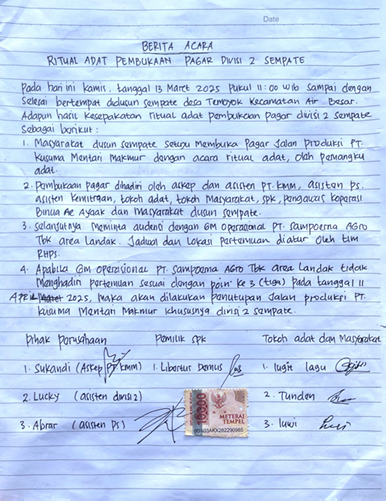 Date
BERITA ACARA
RITUAL ADAT PEMBUKAAN PAGAR DIVISI 2 SEMPATE
Pada hari ini kamis, tanggal 13 Maret 2025 Pukul 11:00 wib sampai dengan
Selesai bertempat didusun sempate desa Temoyok Kecamatan Air Besar.
Adapun hasil Kesepakatan ritual adat pembukaan pagar divisi 2 sempate
Sebagai berikut :
1. Masyarakat dusun sempate setuju Membuka Pagar Jalan Produksi PT.
Kusuma Mentari Makmur dengan acara ritual adat, oleh pemangku
adat.
2. Pembukaan pagar dihadiri oleh askep dan asisten PT. KMM, Asisten ps.
asisten kemitraan, tokoh adat, tokoh Masyarakat, spk, pengawas koperasi
Binua Ae Ayaak dan Masyarakat dusun sempate.
3. Selanjutnya Meminta audensi dengan GM Operasional PT. Sampoerna AGRO
Tbk area Landak. Jadwal dan Lokasi Pertemuan diatur oleh tim
RHPS.
4. Apabila GM Operasional PT. Sampoerna Agro Tbk area Landak tidak
Menghadiri Pertemuan sesuai dengan poin ke 3 (tiga) pada tanggal 11
APRIL 2025, Maka akan dilakukan penutupan Jalan produksi PT.
Kusuma Mentari Makmur khususnya divisi 2 sempate.
Pihak Perusahaan Pemilik SPK Tokoh adat dan Masyarakat
1. Sukandi (Askep PT KMM) 1. Libertur Demus 1. lugie lagu
2. Lucky (asisten divisi 2) 2. Tunden
3. Abrar (asisten PS) 3. luwi
10000
METERAI
TEMPEL